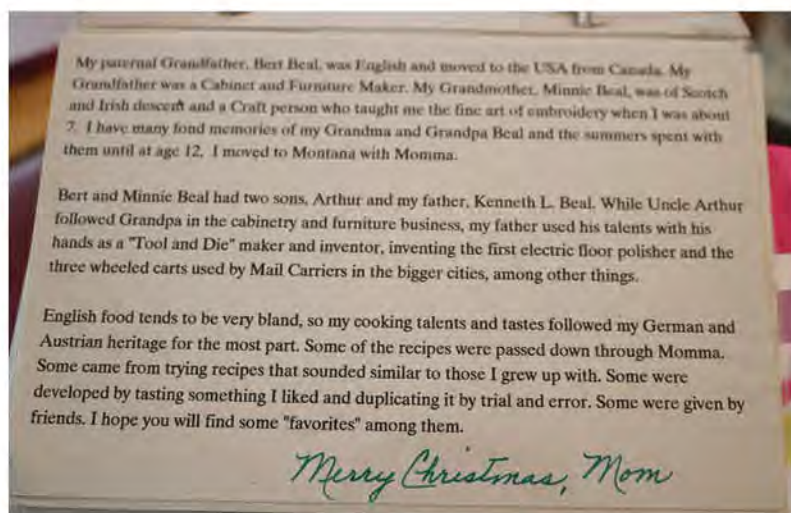 My paternal Grandfather, Bert Beal, was English and moved to the USA from Canada. My
Grandfather was a Cabinet and Furniture Maker. My Grandmother, Minnie Beal, was of Scotch
and Irish descent and a Craft person who taught me the fine art of embroidery when I was about
7. I have many fond memories of my Grandma and Grandpa Beal and the summers spent with
them until at age 12, I moved to Montana with Momma.
Bert and Minnie Beal had two sons, Arthur and my father, Kenneth L. Beal. While Uncle Arthur
followed Grandpa in the cabinetry and furniture business, my father used his talents with his
hands as a "Tool and Die" maker and inventor, inventing the first electric floor polisher and the
three wheeled carts used by Mail Carriers in the bigger cities, among other things.
English food tends to be very bland, so my cooking talents and tastes followed my German and
Austrian heritage for the most part. Some of the recipes were passed down through Momma.
Some came from trying recipes that sounded similar to those I grew up with. Some were
developed by tasting something I liked and duplicating it by trial and error. Some were given by
friends. I hope you will find some "favorites" among them.
Merry Christmas, Mom